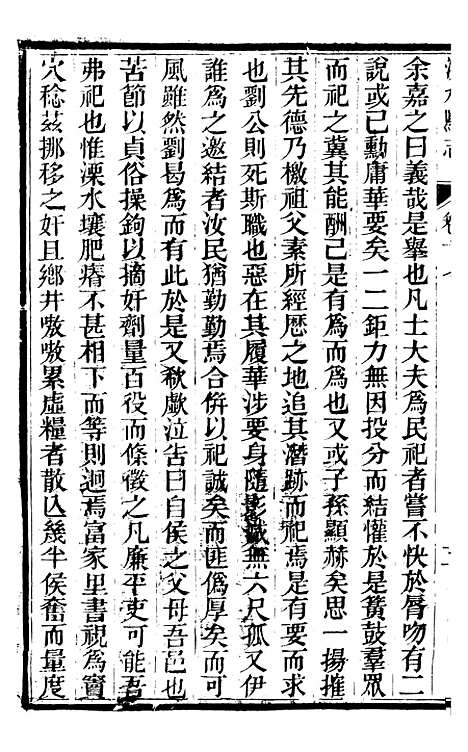 余嘉之曰義哉是舉也凡士大夫爲民祀者嘗不快於脣吻有二
說或已勳庸華要矣一二鉅力無因投分而結懽於是簧鼓羣眾
而祀之冀其能酬己是有爲而爲也又或子孫顯赫矣思一揚搉
其先德乃檄祖父素所經歷之地追其潛跡而祀焉是有要而求
也劉公則死斯職也惡在其履華涉要身隨影滅無六尺孤又伊
誰爲之邀結者汝民猶勤勤焉合倂以祀誠矣而匪僞厚矣而可
風雖然劉曷爲而有此於是又欷歔泣告曰自侯之父母吾邑也
苦節以貞俗操鉤以摘奸劑量百役而條徵之凡廉平吏可能吾
弗祀也惟溧水壤肥瘠不甚相下而等則迥焉富家里書視爲竇
穴稔茲挪移之奸且鄉井嗷嗷累虛糧者散亾幾半侯奮而量度